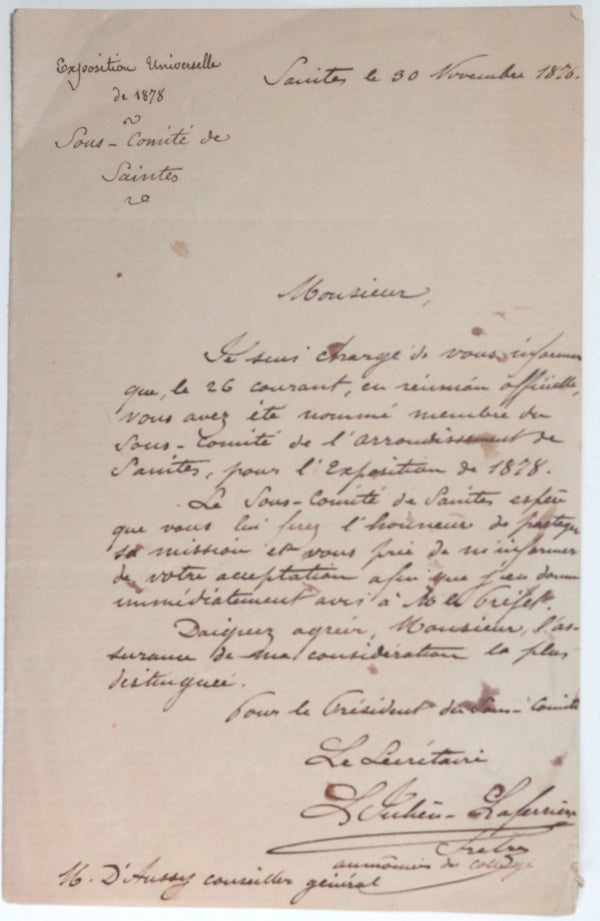 Exposition Universelle
de 1878
Sous-Comité de
Saintes
Saintes le 30 Novembre 1876.
Monsieur,
Je suis chargé de vous informer
que, le 26 courant, en réunion officielle,
vous avez été nommé membre du
Sous-Comité de l'arrondissement de
Saintes, pour l'Exposition de 1878.
Le Sous-Comité de Saintes espère
que vous lui ferez l'honneur de partager
sa mission et vous prie de m'informer
de votre acceptation afin que j'en donne
immédiatement avis à M. le Préfet.
Daignez agréer, Monsieur, l'as-
surance de ma considération la plus
distinguée.
Pour le Président du Sous-Comité
Le Secrétaire
L Julien-Laferrière
Prêtre
aumônier du collège
M. D'Aussy conseiller général